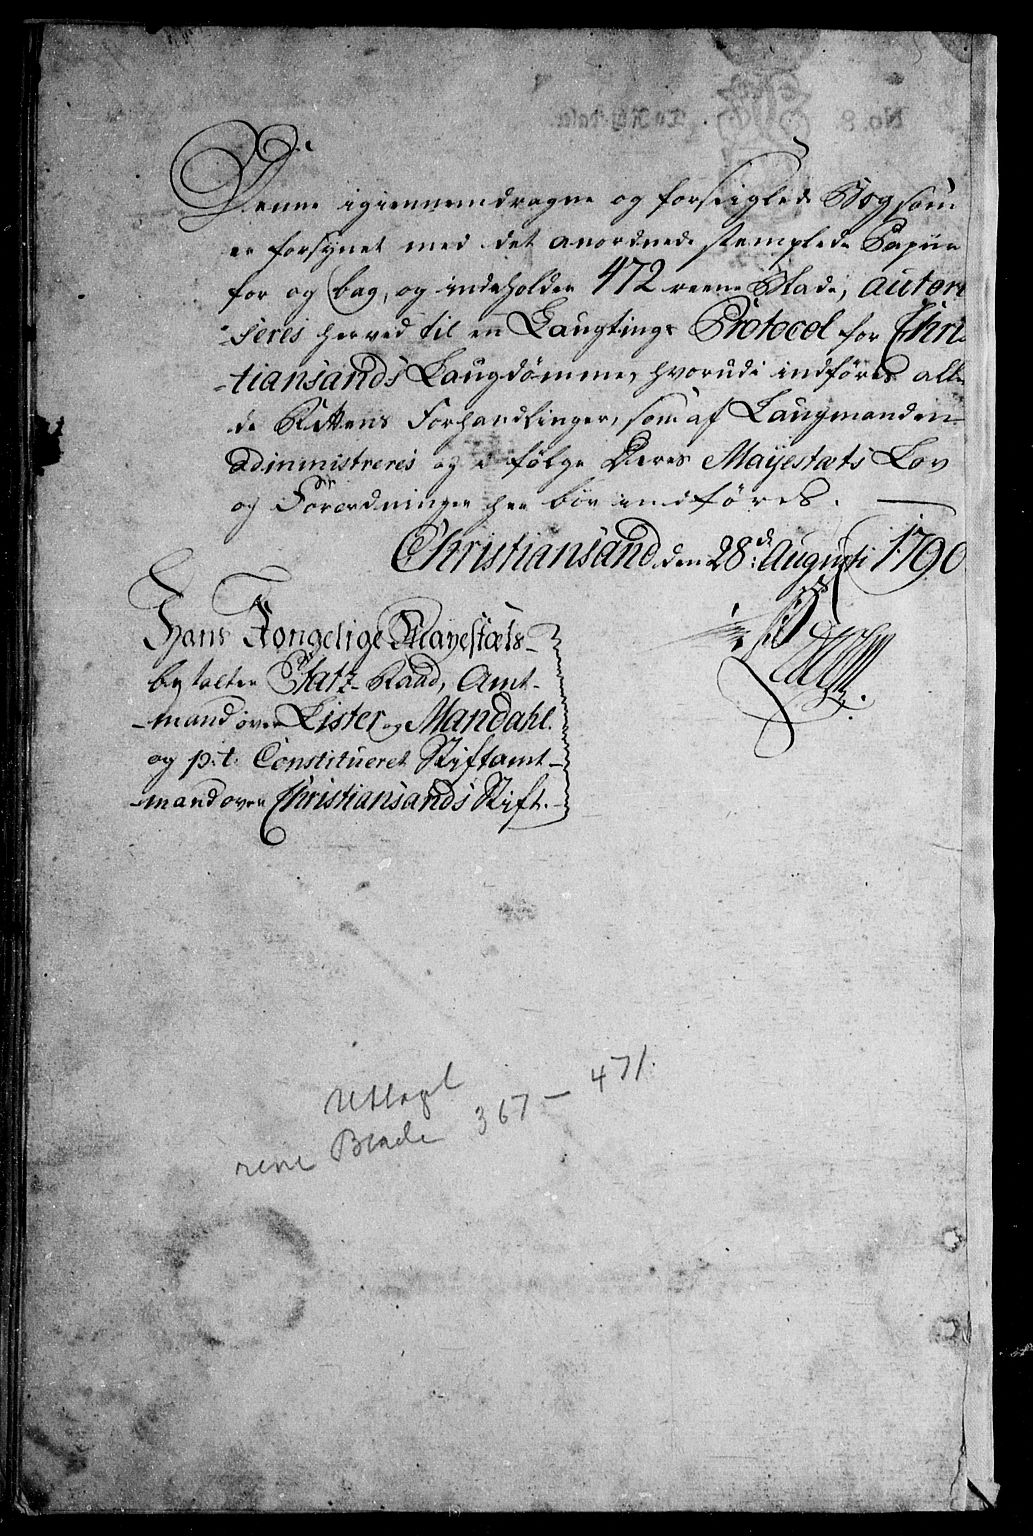 Denne igiennemdragne og forseiglede Bog, som
er forsynet med det anordnede stemplede Papiir
for og bag, og indeholder 472 reene Blade, autori
-seres herved til en Laugtings Protocol for Chri
-tiansands Laugdømme, hvorudi indføres alle
de Rettens Forhandlinger, som af Laugmanden
administreres og i følge Deres Mayestæts Lov
og Forordninger her bør indføres. —
Christiansand den 28de Augusti 1790
Hans Kongelige Mayestæts
bestalter Etatz-Raad, Amt-
-mand over Lister og Mandahl.
og p:t: Constitueret Stiftamt-
-mand over Christiansands Stift.
Uttagl
rene Blade 367 — 471.
No. 8.